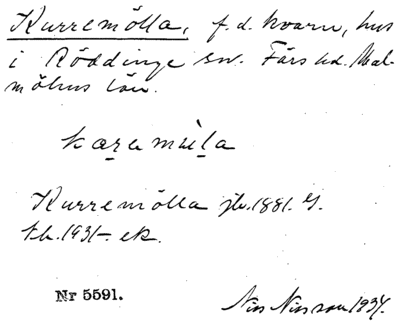 Kurremölla, f.d. kvarn, hus
i Röddinge sn. Färs hd. Mal-
möhus län.
Kurremölla jb. 1881. G.
tb. 1931. ek.
Nr 5591.
Nils Nilsson 1934.